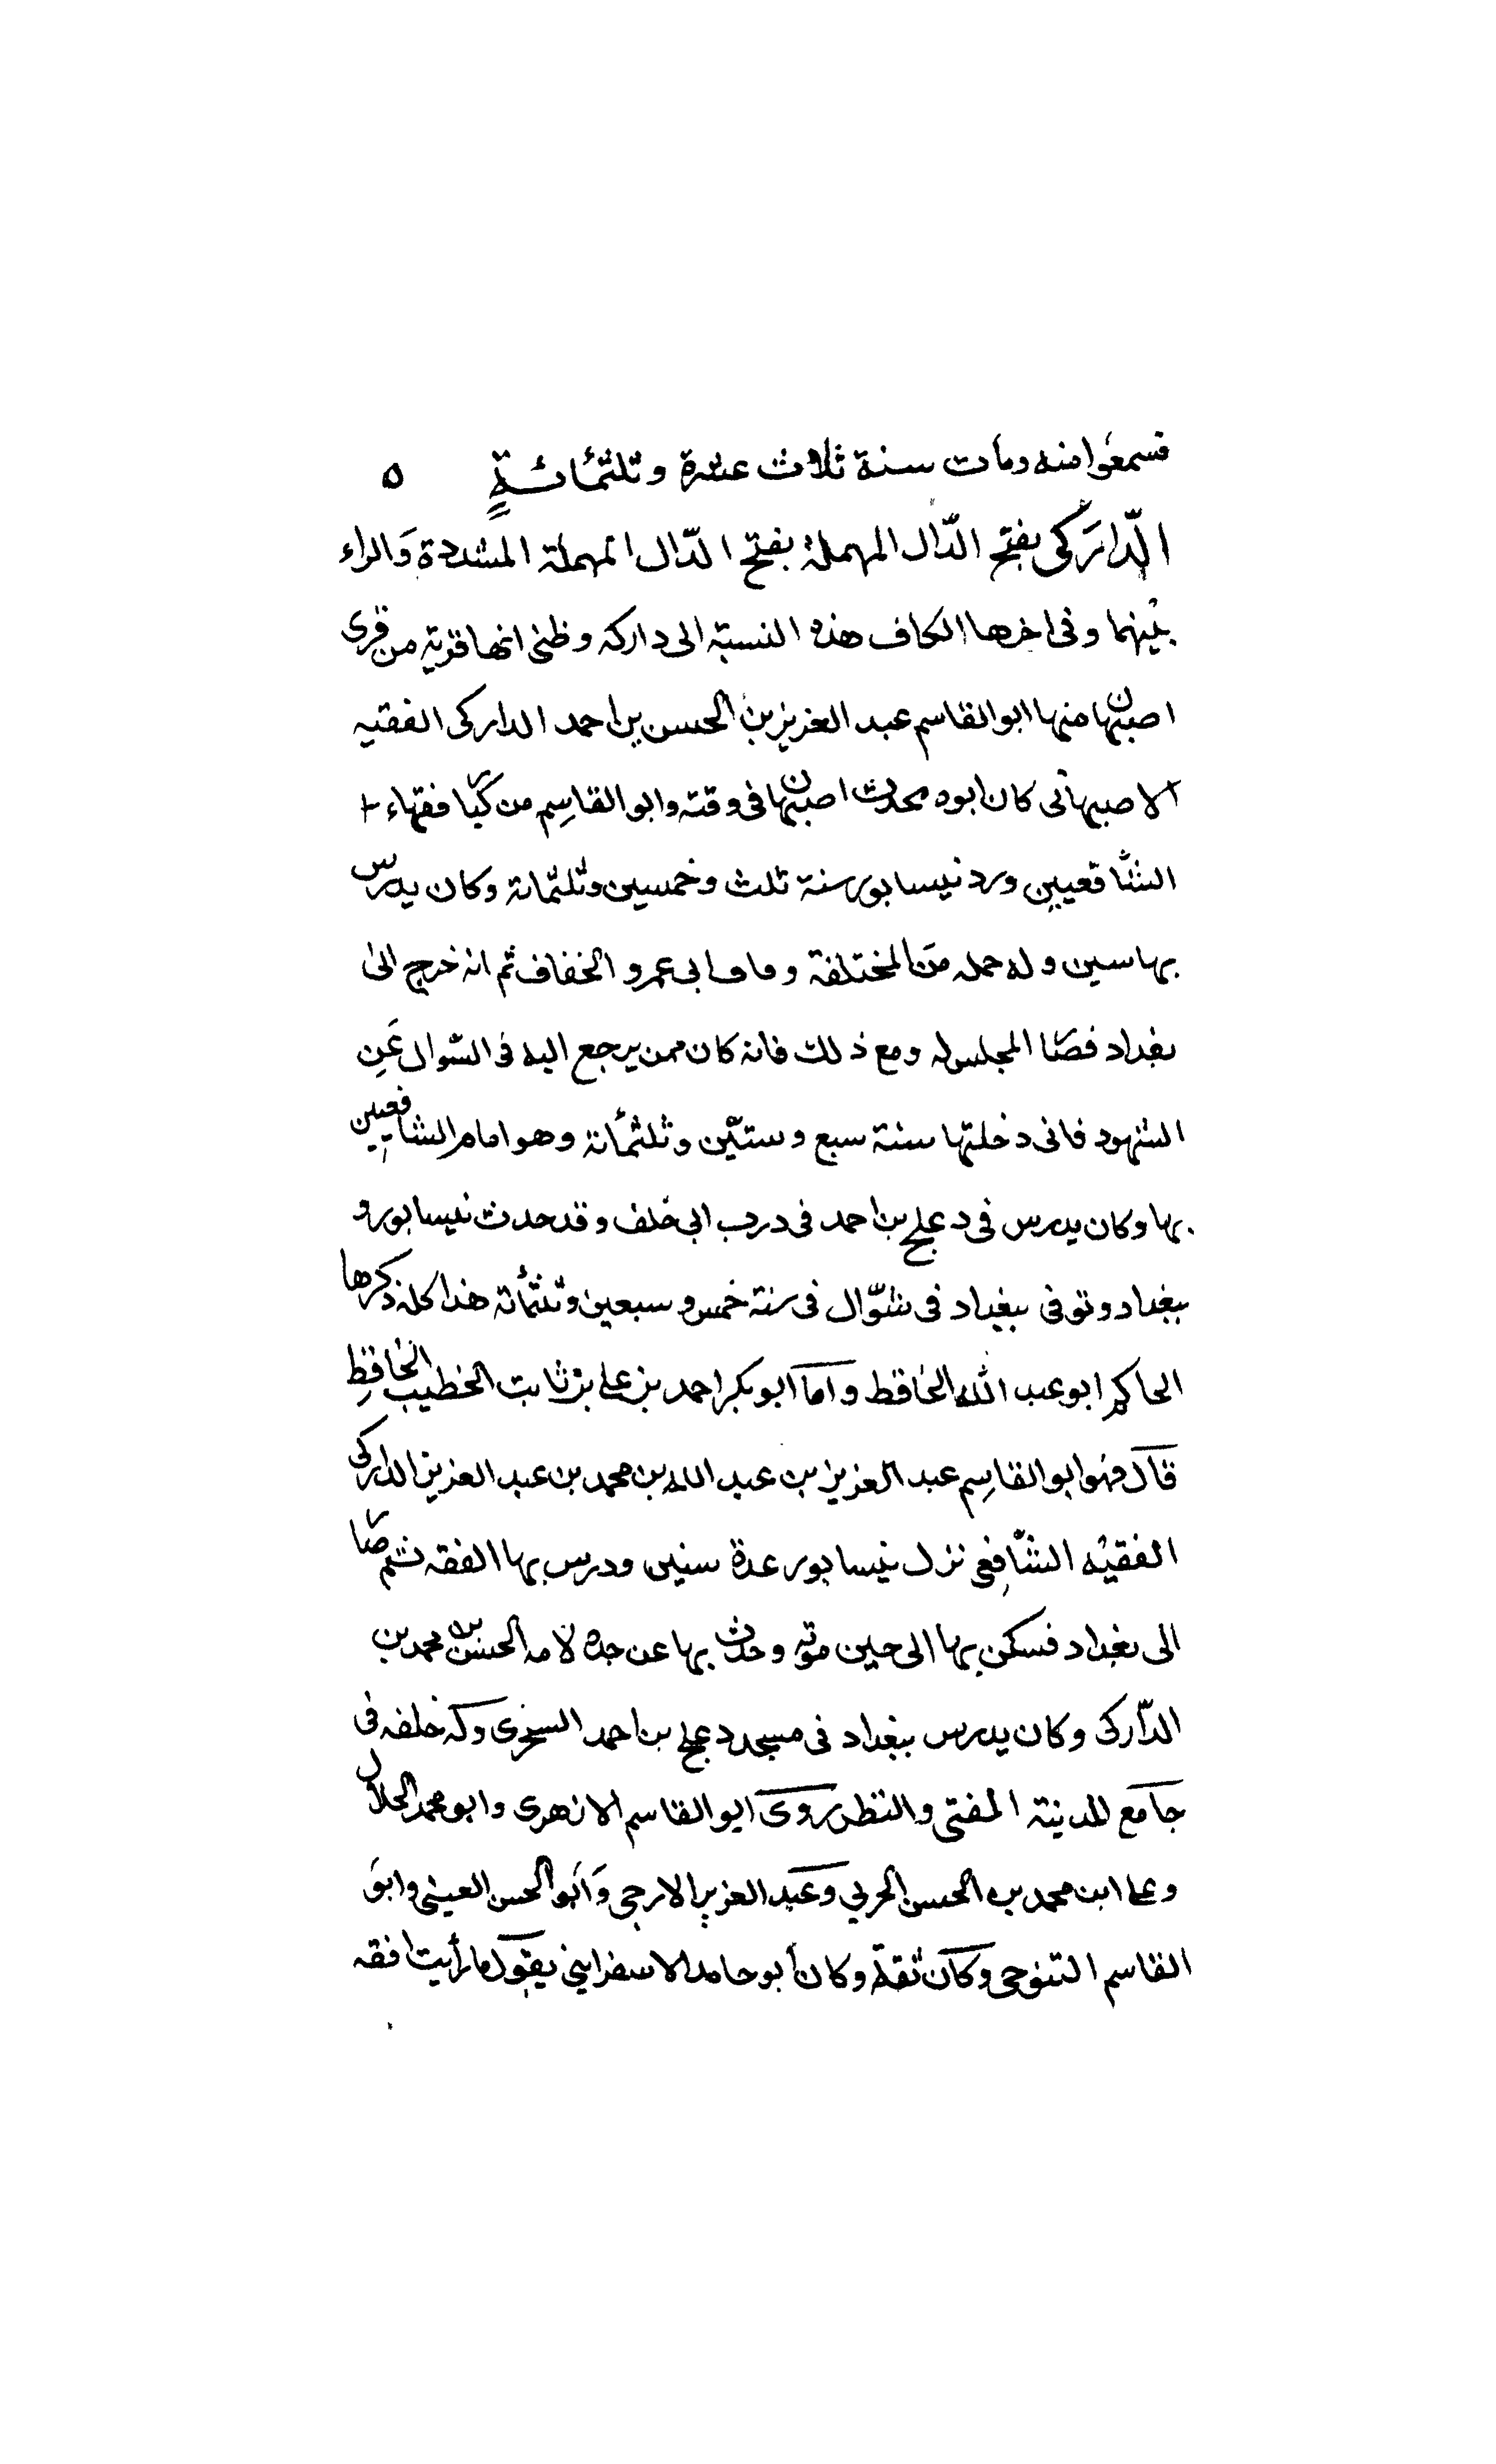 فسمعوا منه ومات سنة ثلاث عشرة وثلثمائة ٥
الدَّارَكى بفتح الدّال المهملة بفتح الدّال المهملة المشددة وَالراء
بينهما وفى اخرها الكاف هذه النسبة الى داركه وظنى انها قرية من قرى
اصبهان منها ابو القاسم عبد العزيز بن الحسن بن احمد الداركى الفقيه
الاصبهانى كان ابوه محدث اصبهان فى وقته وابو القاسم من كبار فقهاء
الشّافعيين ورد نيسابور سنة ثلث وخمسين وثلثمائة وكان يدرس
بها سنين وله جمله من المختلفة ابى عمرو الخفاف ثم انه خرج الى
بغداد فصار المجلس له ومع ذلك فانه كان ممن يرجع اليه فى السّوال عَنِ
الشهود فانى دخلتها سنة سبع وستّين وثلثمأئة وهو امام الشافعيين
بها وكان يدرس فى دعلج بن احمد فى درب ابى خلف وقد حدث نيسابور و
ببغداد وتوفى ببغداد فى شوّال فى سنة خمس وسبعين وثلثمأئة هذا كله ذكرها
الحاكم ابو عبد الله الحافظ واما ابو بكر احمد بن على بن ثابت الخطيب الحافظِ
قال فهو ابو القاسِم عبد العزيز بن عبد الله بن محمد بن عبد العزيز الداركى
الفقيْه الشّافِعى نزل نيسابور عدة سنين ودرس بها الفقه ثم صَار
الى بغداد فسكن بها الى حين موته وحدث بها عن جده لامه الحسن بن محمد بن
الدّاركى وكان يدرس ببغداد فى مسجد دعلج بن احمد السجزى وكه خلفه فى
جامع المدينة المفتى والنظر روى ابو القاسم الازهرى وابو محمد الخلال
وعلى ابن محمد بن الحسن الحربي وعَبد العزيز الازجى وَابو الحسن العينى وابو
القاسم التنوخى وكان ثقة وكان أبو حامد الاسفراينى يقول ما رأيت افقه